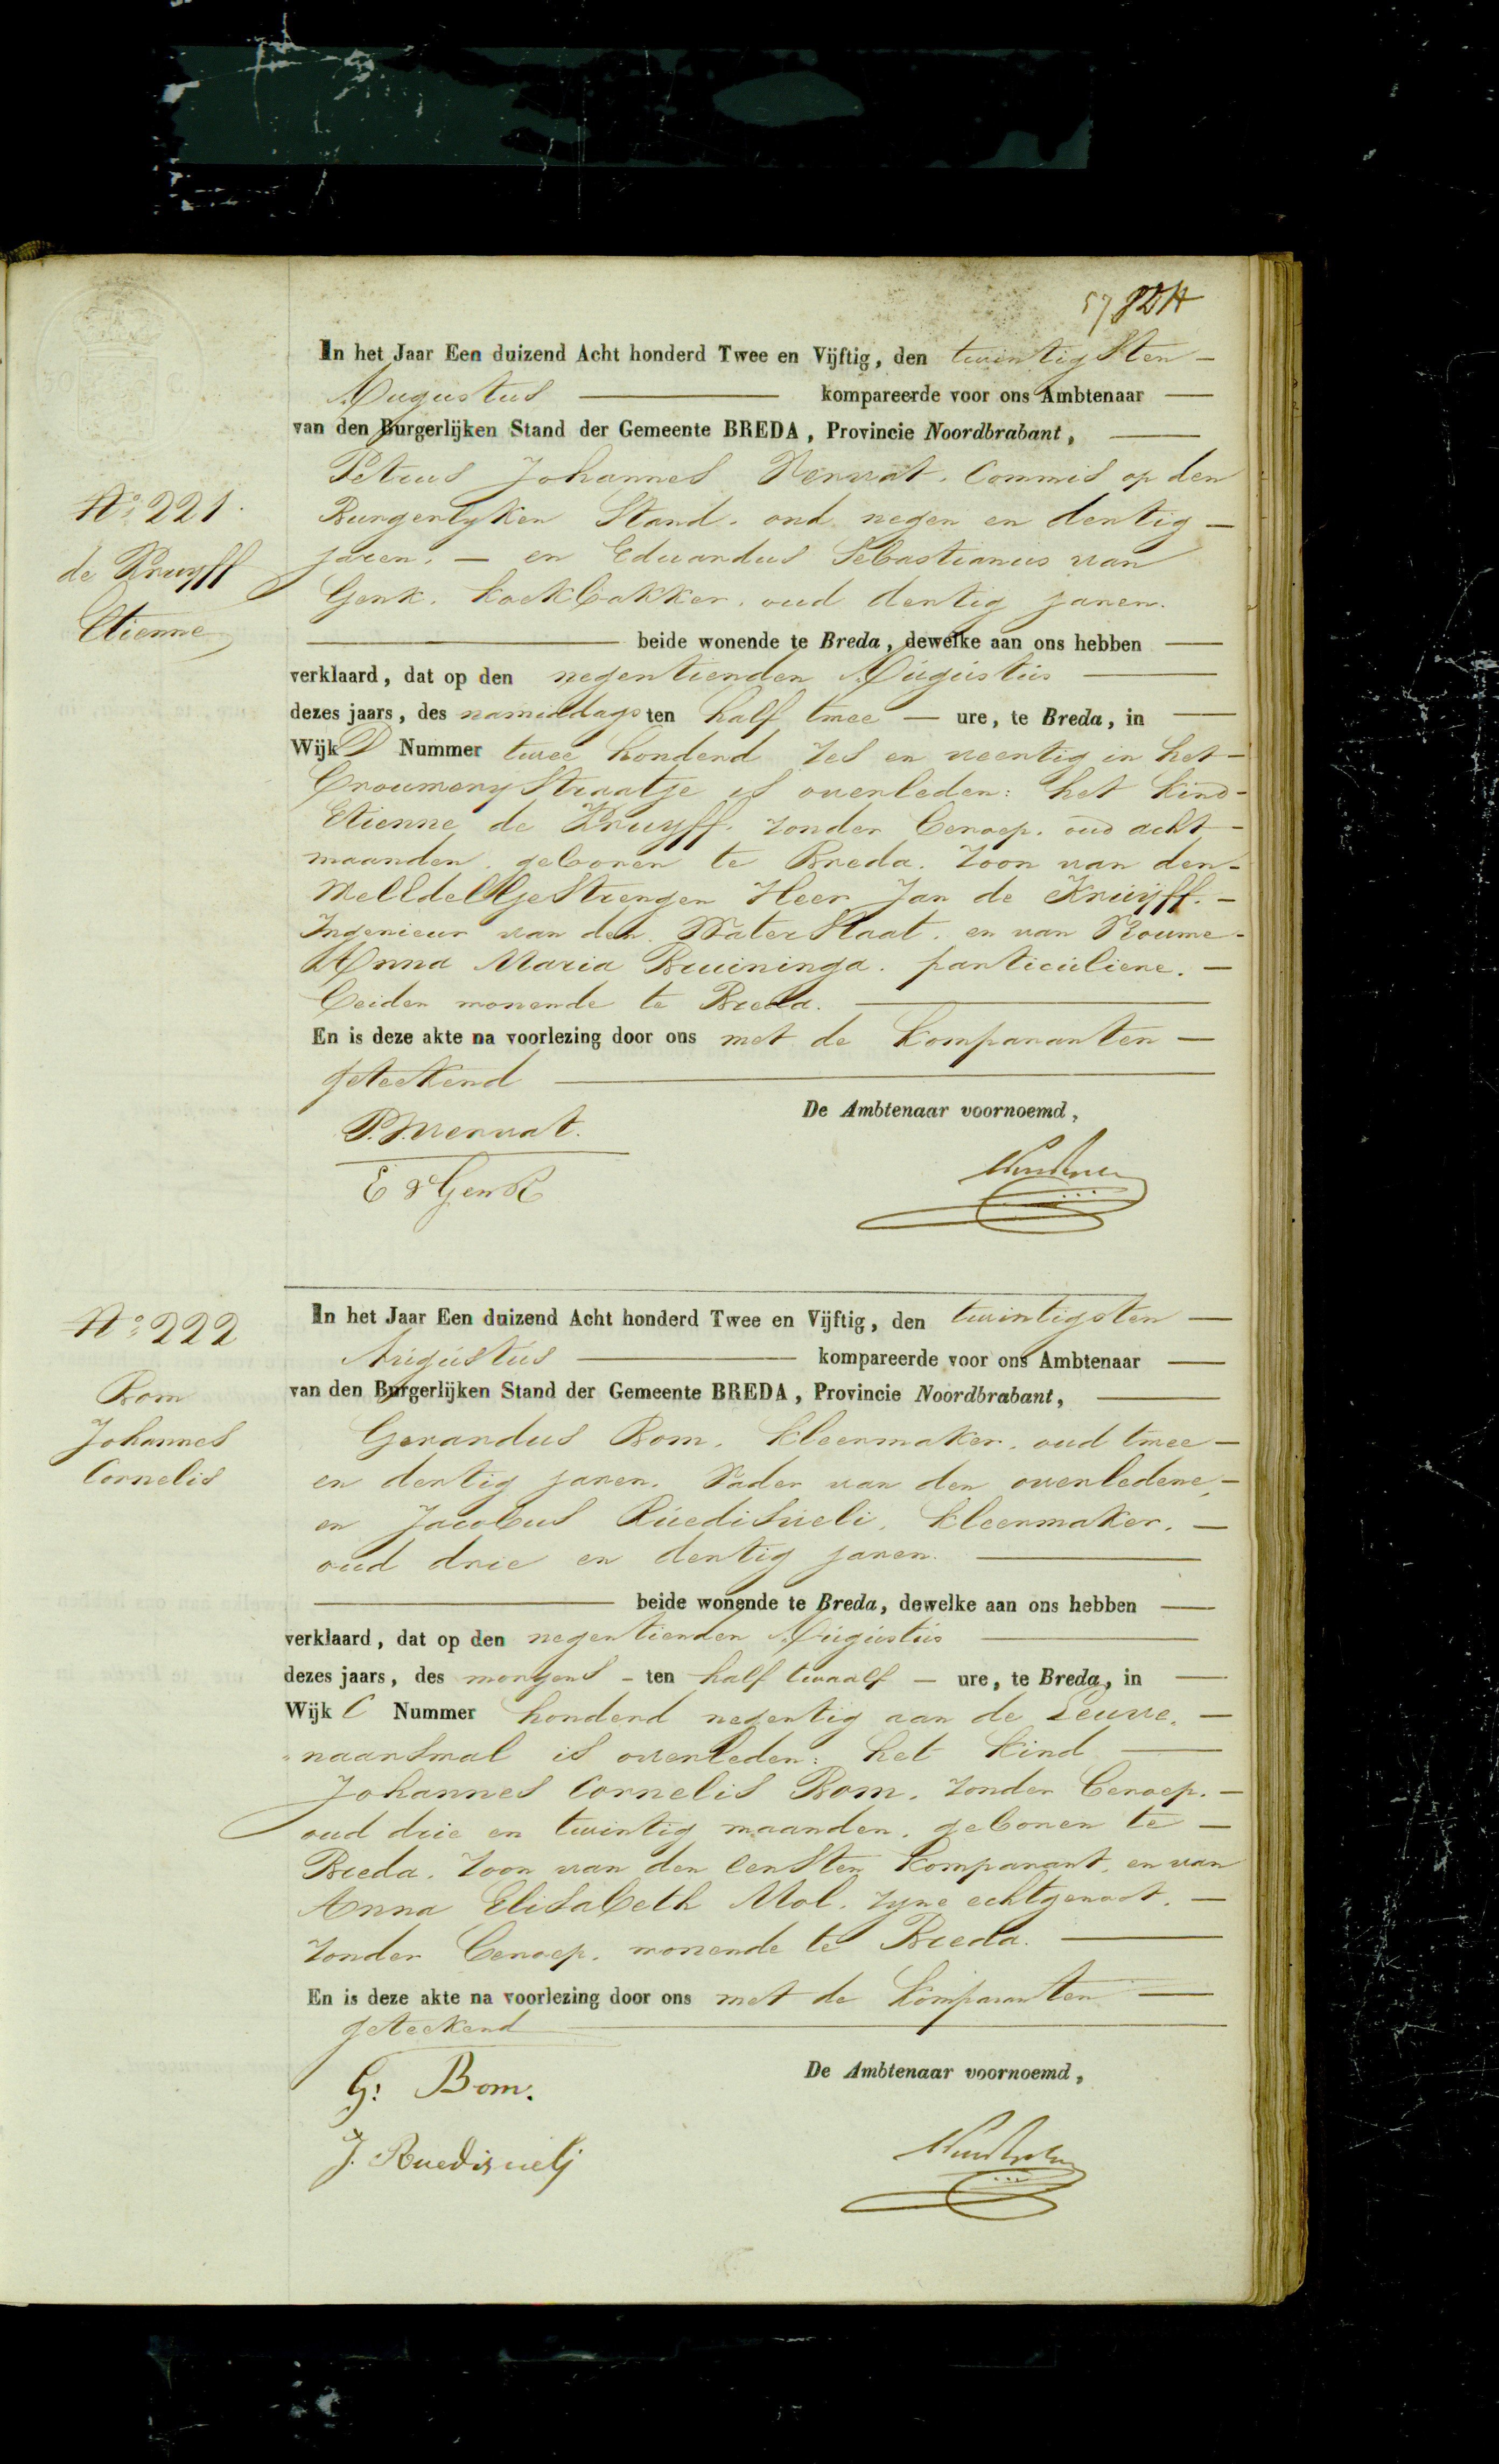 57
In het Jaar Een duizend Acht honderd Twee en Vijftig, den twintigsten
Augustus kompareerde voor ons Ambtenaar
van den Burgerlijken Stand der Gemeente BREDA, Provincie Noordbrabant,
Petrus Johannes Vervat. Commis op den
No 221.
Burgerlyken Stand. oud negen en dertig
de Kruyff
jaren. en Eduardus Sebastianus van
Etienne
Genk. koekbakker. oud dertig jaren.
beide wonende te Breda, dewelke aan ons hebben
verklaard, dat op den negentienden Augustus
dezes jaars, des namiddags ten half twee ure, te Breda, in
Wijk D Nummer twee honderd zes en veertig in het
Brouwerystraatje is overleden: het kind
Etienne de Kruyff. zonder beroep. oud acht
maanden. geboren te Breda. Zoon van den
WelEdelGestrengen Heer Jan de Kruyff.
Ingenieur van den Waterstaat. en van
Anna Maria Bruininga. particuliere.
beiden wonende te Breda.
En is deze akte na voorlezing door ons met de komparanten
geteekend
De Ambtenaar voornoemd,
P.J. Vervat.
E v Genk
No 222
In het Jaar Een duizend Acht honderd Twee en Vijftig, den twintigsten
Augustus kompareerde voor ons Ambtenaar
Bom
van den Burgerlijken Stand der Gemeente BREDA, Provincie Noordbrabant,
Johannes
Gerardus Bom. kleermaker. oud twee
Cornelis
en dertig jaren. Vader van den overledene,
en Jacobus Ruedisueli. kleermaker.
oud drie en dertig jaren.
beide wonende te Breda, dewelke aan ons hebben
verklaard, dat op den negentienden Augustus
dezes jaars, des morgens ten half twaalf ure, te Breda, in
Wijk C Nummer honderd negentig aan de Leuve
naarswal is overleden: het kind
Johannes Cornelis Bom. zonder beroep.
oud drie en twintig maanden. geboren te
Breda. Zoon van den eersten komparant. en van
Anna Elisabeth Mol. zyne echtgenoot.
zonder beroep. wonende te Breda.
En is deze akte na voorlezing door ons met de komparanten
geteekend
De Ambtenaar voornoemd,
G: Bom.
J. Ruedisuelj